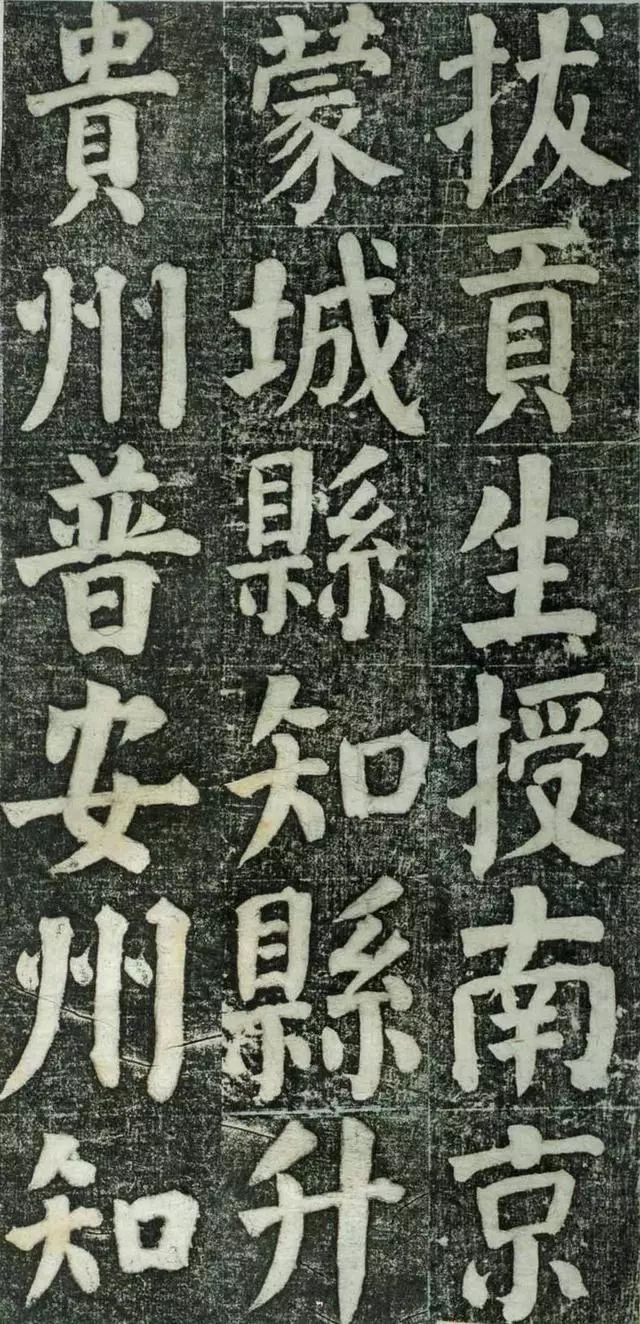 拔貢生授南京
蒙城縣知縣升
貴州普安州知